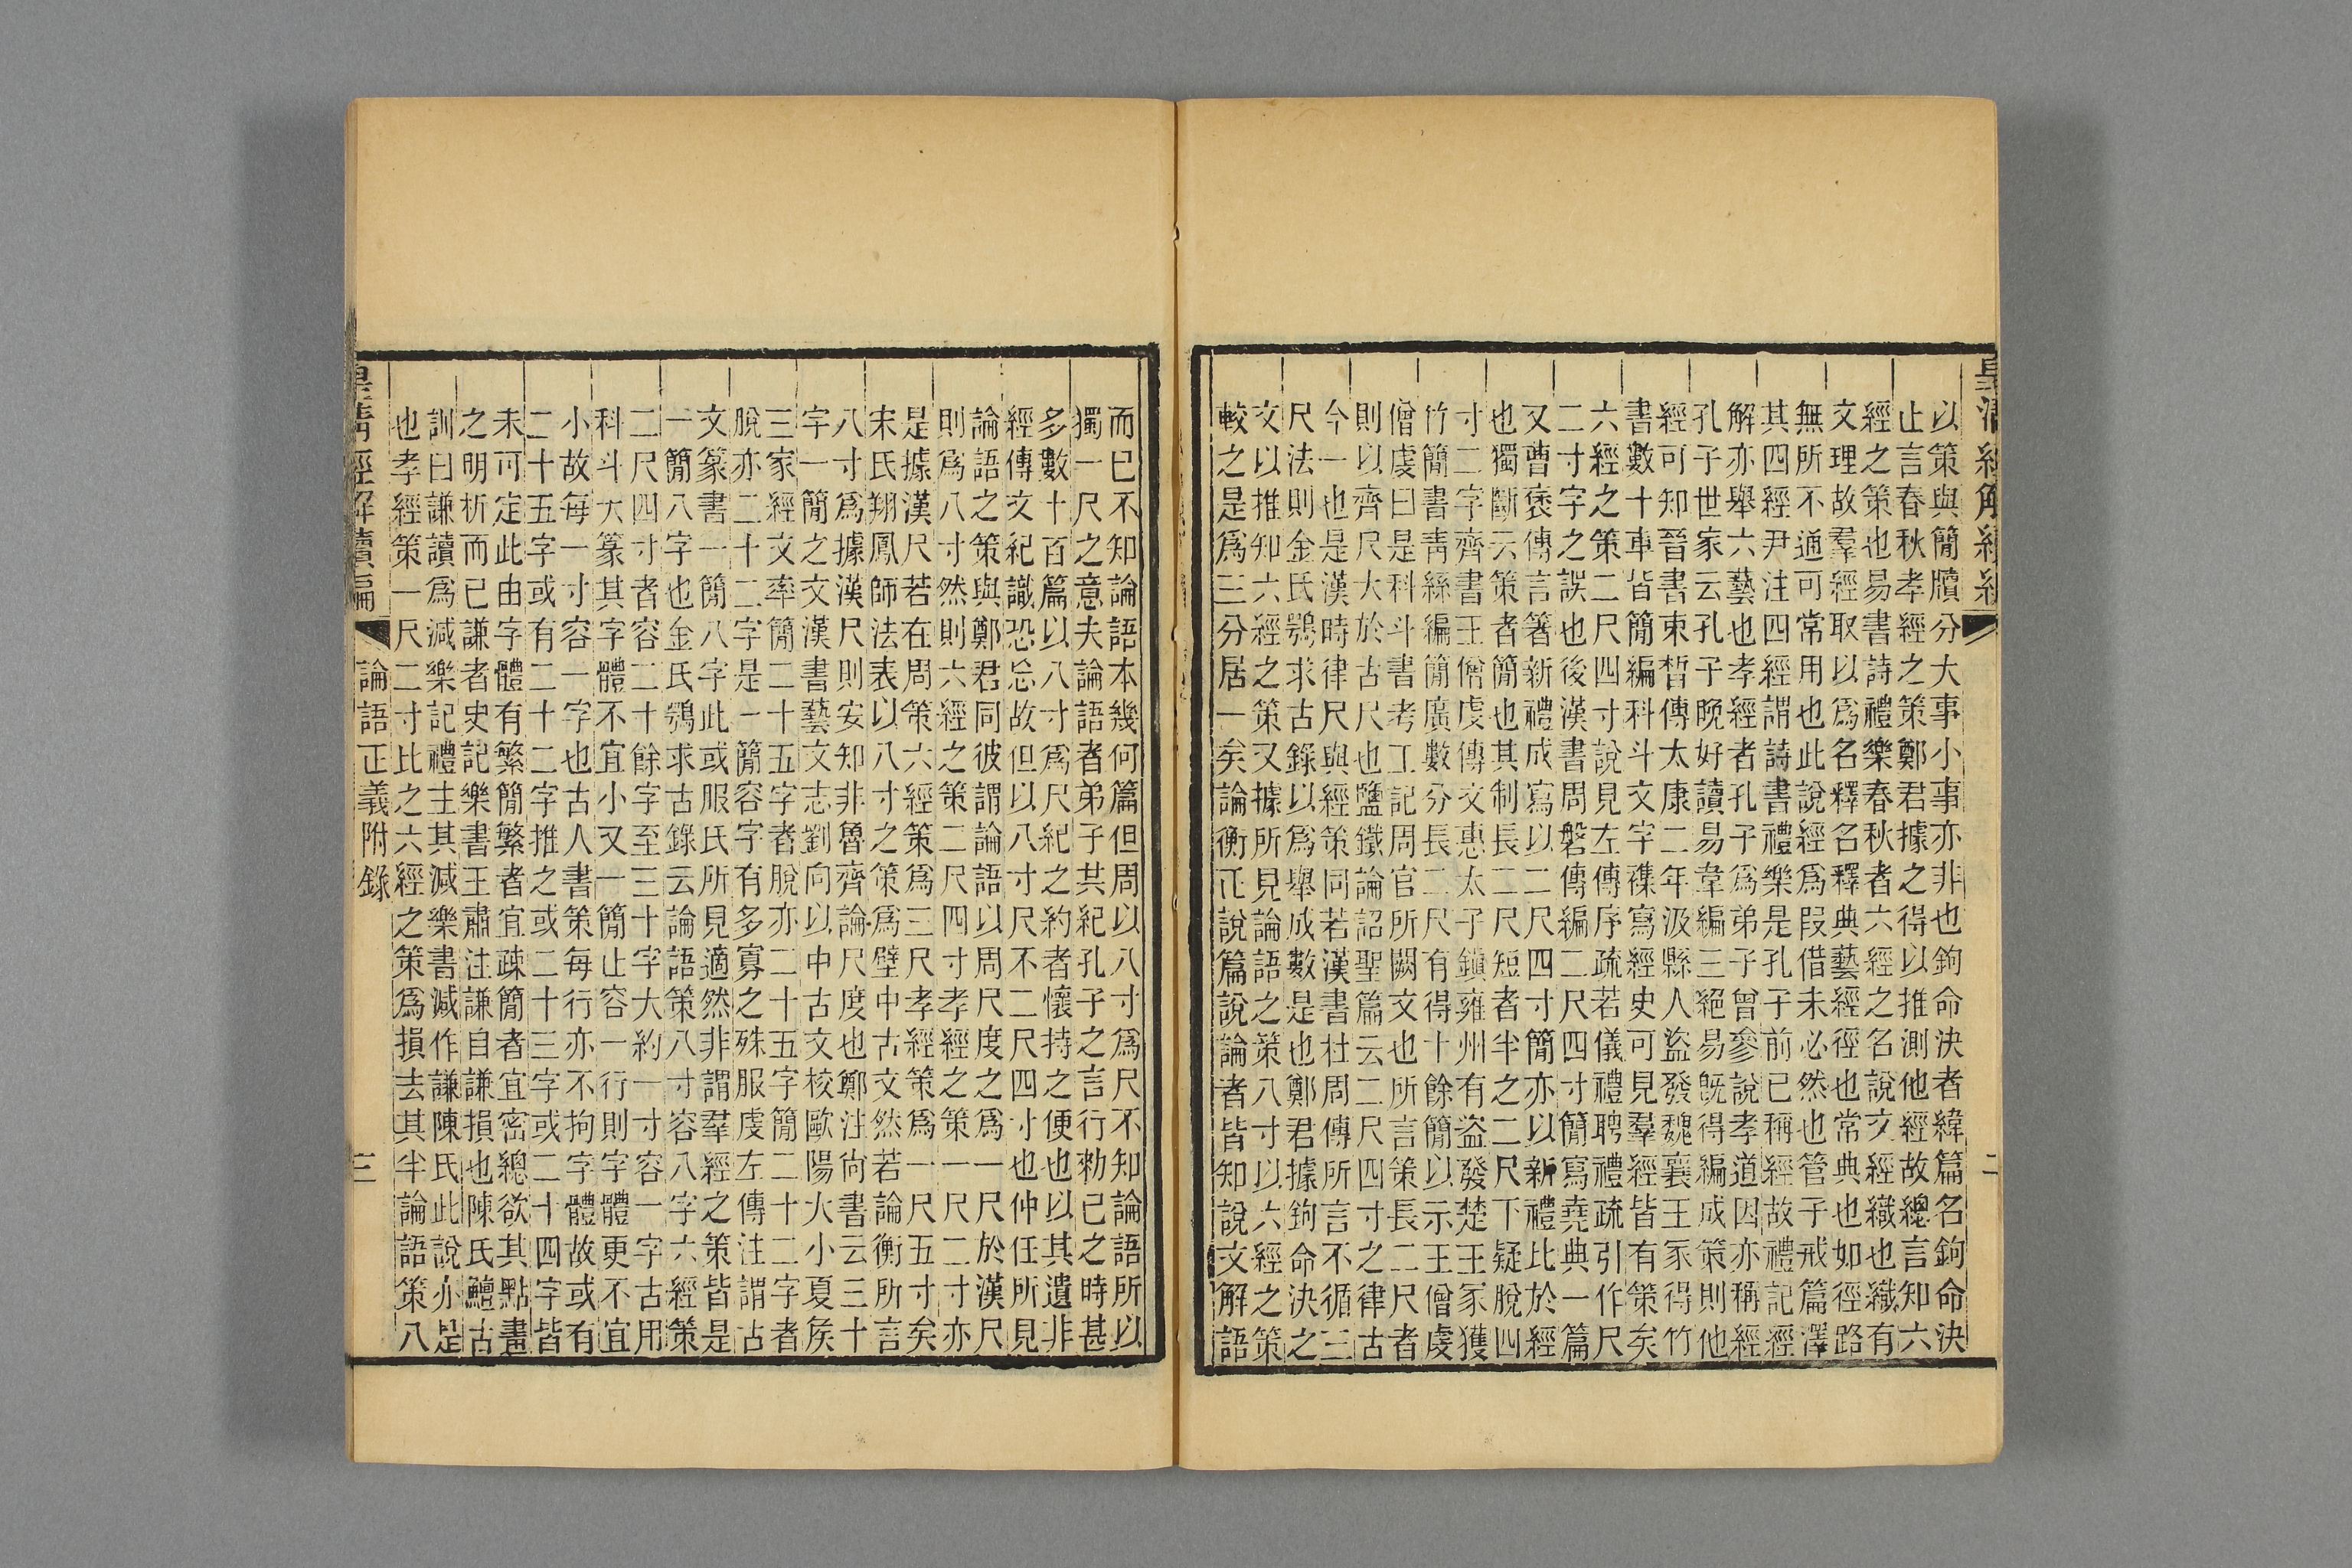 皇清經解續編
二
以策與簡牘分大事小事亦非也鉤命決者緯篇名鉤命決
止言春秋孝經之策鄭君據之得以推測他經故總言知六
經之策也易書詩禮樂春秋者六經之名說文經織也織有
文理故羣經取以爲名釋名釋典藝經徑也常典也如徑路
無所不通可常用也此說經爲叚借未必然也管子戒篇澤
其四經尹注四經謂詩書禮樂是孔子前已稱經故禮記經
解亦舉六藝也孝經者孔子爲弟子曾參說孝道因亦稱經
孔子世家云孔子晩好讀易韋編三絕易旣得編成策則他
經可知晉書束皙傳太康二年汲縣人盜發魏襄王冢得竹
書數十車皆簡編科斗文字襍寫經史可見羣經皆有策矣
六經之策二尺四寸說見左傳序疏若儀禮聘禮疏引作尺
二寸字之誤也後漢書周磐傳編二尺四寸簡寫堯典一篇
又曹褒傳言箸新禮成寫以二尺四寸簡亦以新禮比於經
也獨斷云策者簡也其制長二尺短者半之二尺下疑脫四
寸二字齊書王僧虔傳文惠太子鎭雍州有盜發楚王冢獲
竹簡書靑絲編簡廣數分長二尺有得十餘簡以示王僧虔
僧虔曰是科斗書考工記周官所闕文也所言策長二尺者
則以齊尺大於古尺也鹽鐵論詔聖篇云二尺四寸之律古
今一也是漢時律尺與經策同若漢書杜周傳所言不循三
尺法則金氏鶚求古錄以爲舉成數是也鄭君據鉤命決之
文以推知六經之策又據所見論語之策八寸以六經之策
較之是爲三分居一矣論衡正說篇說論者皆知說文解語
而已不知論語本幾何篇但周以八寸爲尺不知論語所以
獨一尺之意夫論語者弟子共紀孔子之言行勑已之時甚
多數十百篇以八寸爲尺紀之約者懷持之便也以其遺非
經傳文紀識恐忘故但以八寸尺不二尺四寸也仲任所見
論語之策與鄭君同彼謂論語以周尺度之爲一尺於漢尺
則爲八寸然則六經之策二尺四寸孝經之策一尺二寸亦
是據漢尺若在周策六經策爲三尺孝經策爲一尺五寸矣
宋氏翔鳳師法表以八寸之策爲壁中古文然若論衡所言
八寸爲據漢尺則安知非魯齊論尺度也鄭注尙書云三十
字一簡之文漢書藝文志劉向以中古文校歐陽大小夏矦
三家經文率簡二十五字者脫亦二十五字簡二十二字者
脫亦二十二字是一簡容字有多寡之殊服虔左傳注謂古
文篆書一簡八字此或服氏所見適然非謂羣經之策皆是
一簡八字也金氏鶚求古錄云論語策八寸容八字六經策
二尺四寸者容二十餘字至三十字大約一寸容一字古用
科斗大篆其字體不宜小又一簡止容一行則字體更不宜
小故每一寸容一字也古人書策每行亦不拘字體故或有
二十五字或有二十二字推之或二十三字或二十四字皆
未可定此由字體有繁簡繁者宜疎簡者宜密總欲其點畫
之明析而已謙者史記樂書王肅注謙自謙損也陳氏鱣古
訓曰謙讀爲減樂記禮主其減樂書減作謙陳氏此說亦是
也孝經策一尺二寸此之六經之策爲損去其半論語策八
皇淸經解續編
論語正義附錄
三